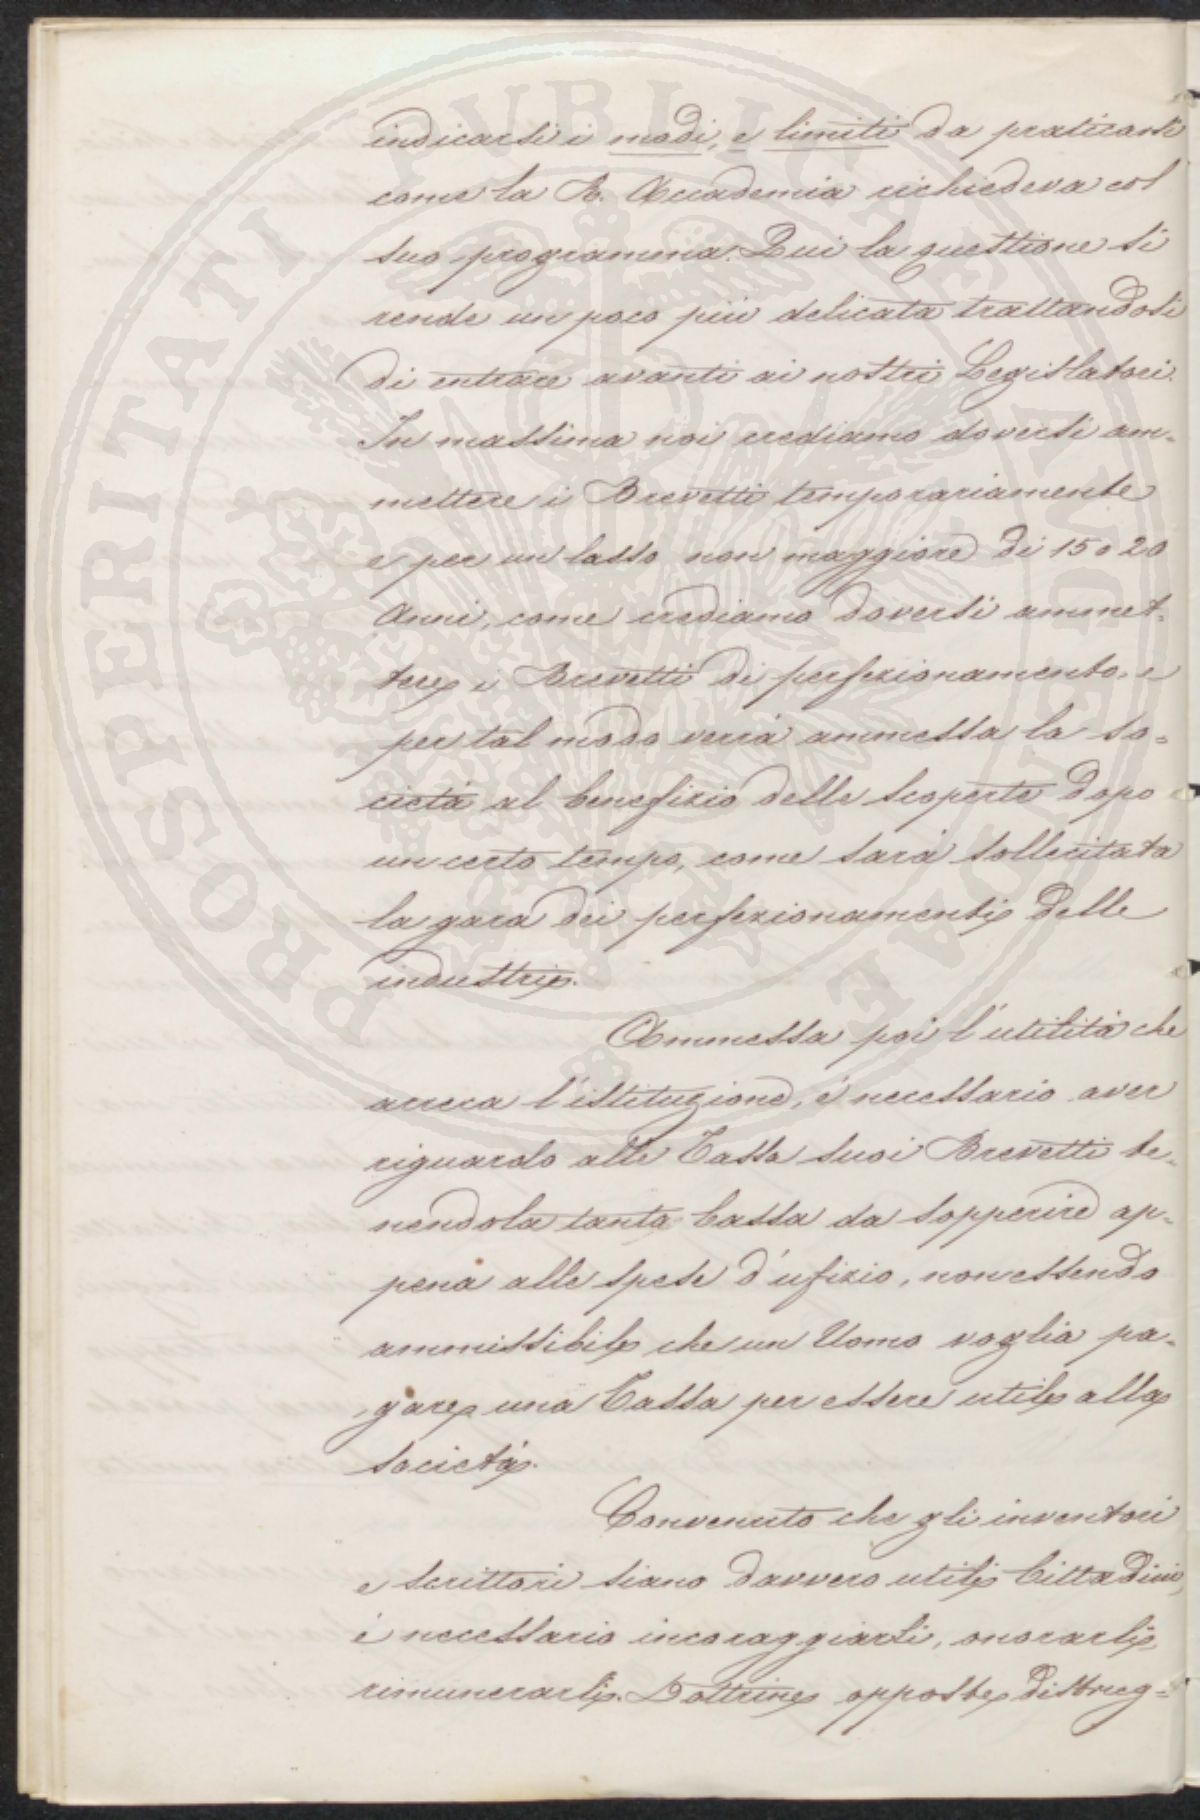 indicarsi i modi, e limiti da praticarsi
come la R. Accademia richiedeva col
suo programma. Qui la questione si
rende un poco più delicata trattandosi
di entrare avanti ai nostri Legislatori.
In massima noi crediamo doversi am-
mettere i Brevetti temporariamente
e per un lasso non maggiore di 15 o 20
Anni, come crediamo doversi ammet-
tere i Brevetti di perfezionamento, e
per tal modo verrà ammessa la so-
cietà al benefizio delle scoperte dopo
un certo tempo, come sarà sollecitata
la gara dei perfezionamenti delle
industrie.
Ammessa poi l'utilità che
arreca l'istituzione, é necessario aver
riguardo alle Tassa suoi Brevetti te-
nendola tanto bassa da sopperire ap-
pena alle spese d'ufizio, non essendo
ammissibile che un Uomo voglia pa-
gare una Tassa per essere utile alla
società.
Convenuto che gli inventori
e scrittori siano davvero utili Cittadini,
é necessario incoraggiarli, onorarli,
rimunerarli. Dottrine opposte distrug-
PROSPERITATI PVBLICAE AVGENDAE